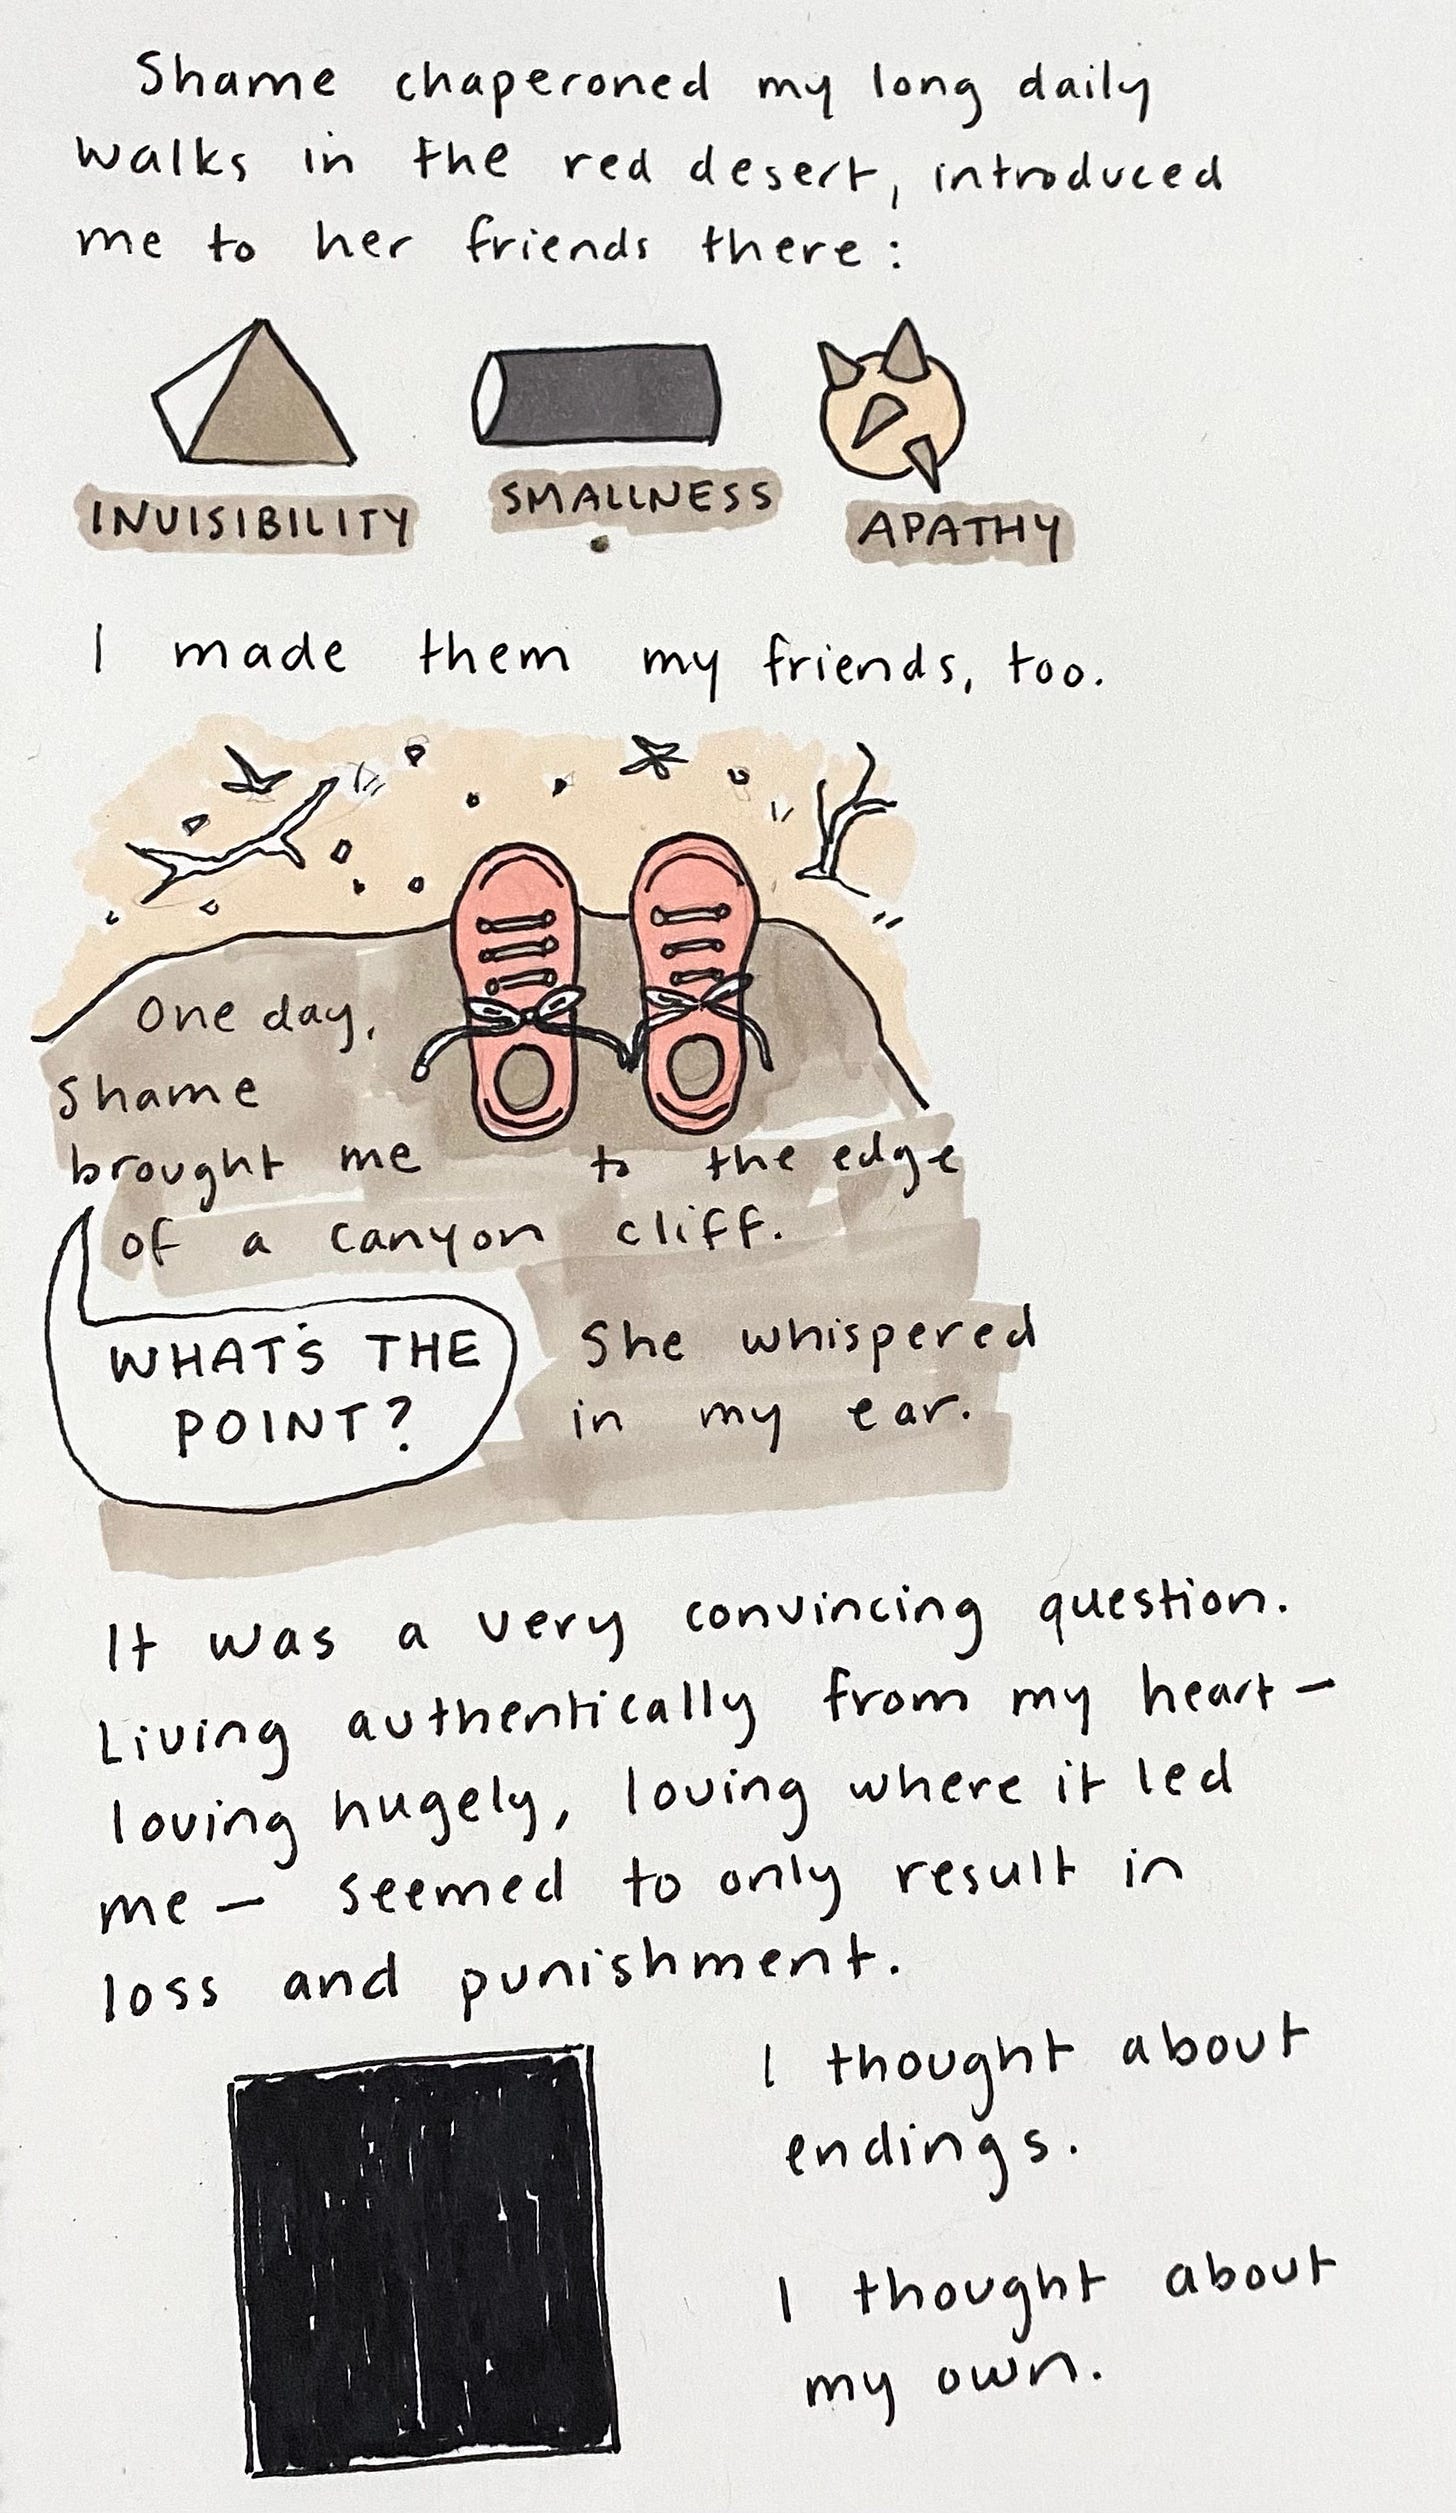 Shame chaperoned my long daily
walks in the red desert, introduced
me to her friends there:
INVISIBILITY
SMALLNESS
APATHY
I made them my friends, too.
One day,
Shame
brought me to the edge
of a canyon cliff.
WHAT'S THE
POINT?
She whispered
in my ear.
It was a very convincing question.
Living authentically from my heart—
loving hugely, loving where it led
me— seemed to only result in
loss and punishment.
I thought about
endings.
I thought about
my own.